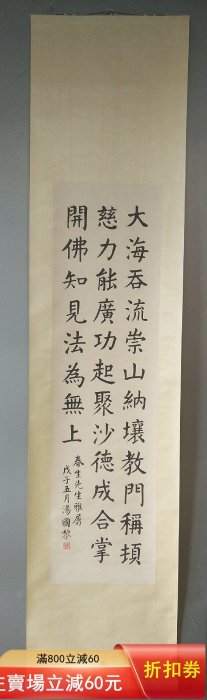 大海吞流崇山納壤教門稱頂
慈力能廣功起聚沙德成合掌
開佛知見法為無上
春生先生雅屬
戊子五月湯國黎
滿800立減60
折扣券
賣場立減60元